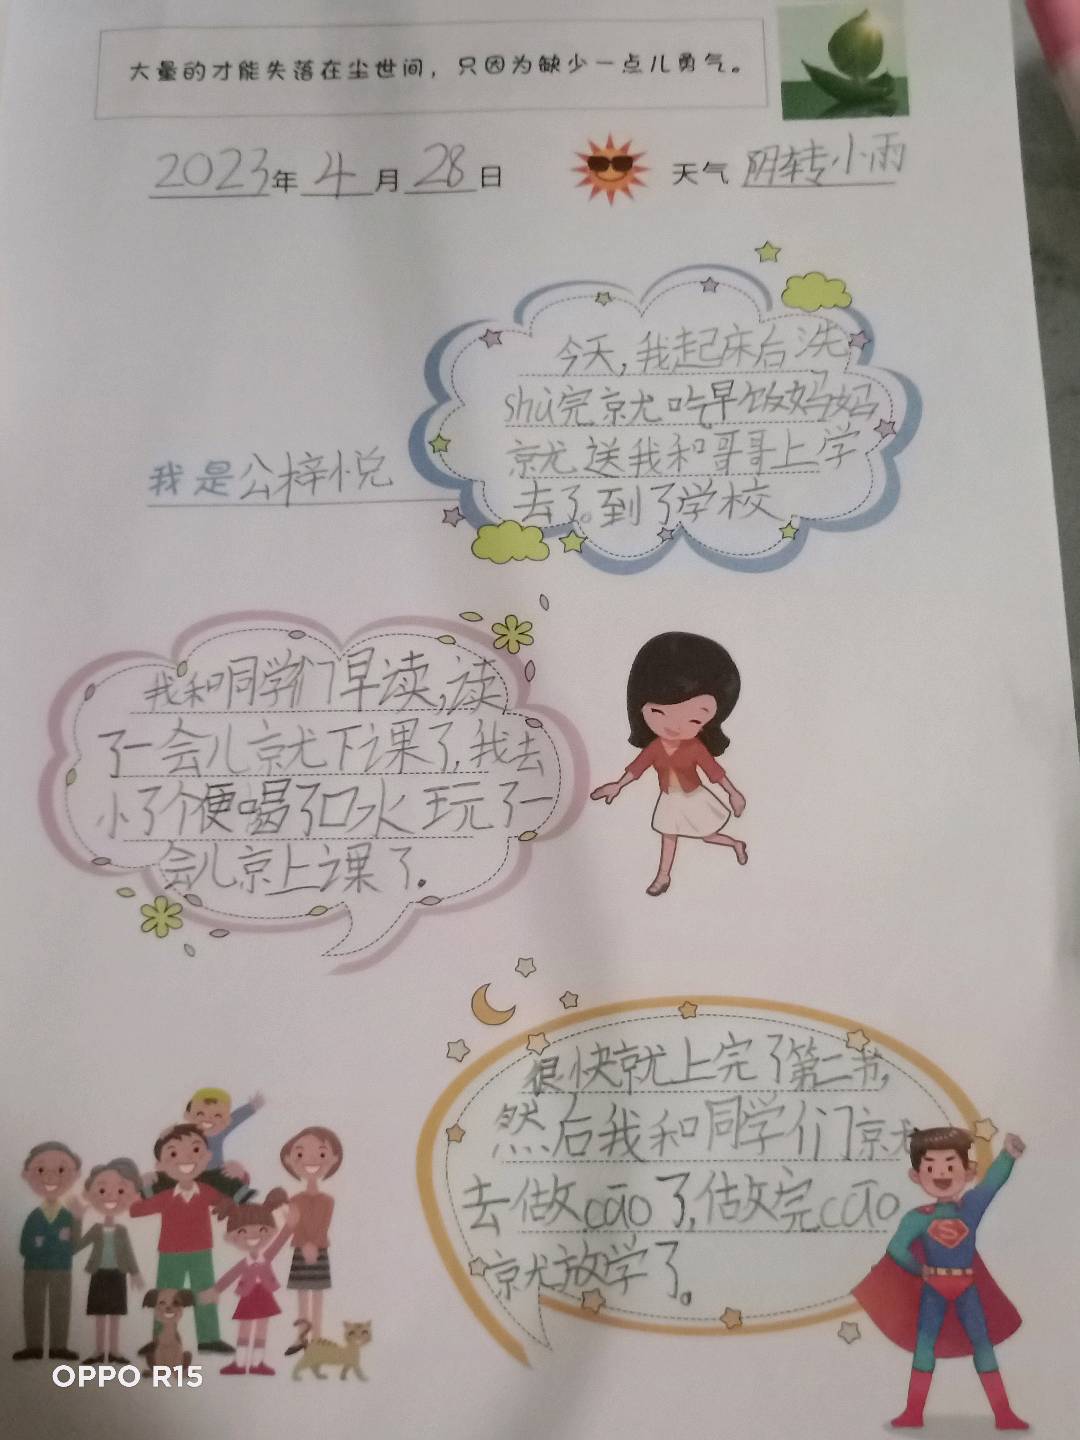 大量的才能失落在尘世间，只因为缺少一点儿勇气。
2023年4月28日 天气 阴转小雨
今天,我起床后洗
shù完就吃早饭妈妈
就送我和哥哥上学
去了。到了学校
我是公梓悦
我和同学们早读,读
了一会儿就下课了,我去
小了个便喝了口水玩了一
会儿京上课了.
很快就上完了第二节,
然后我和同学们就
去做cāo了,做完cāo
就放学了。
OPPO R15